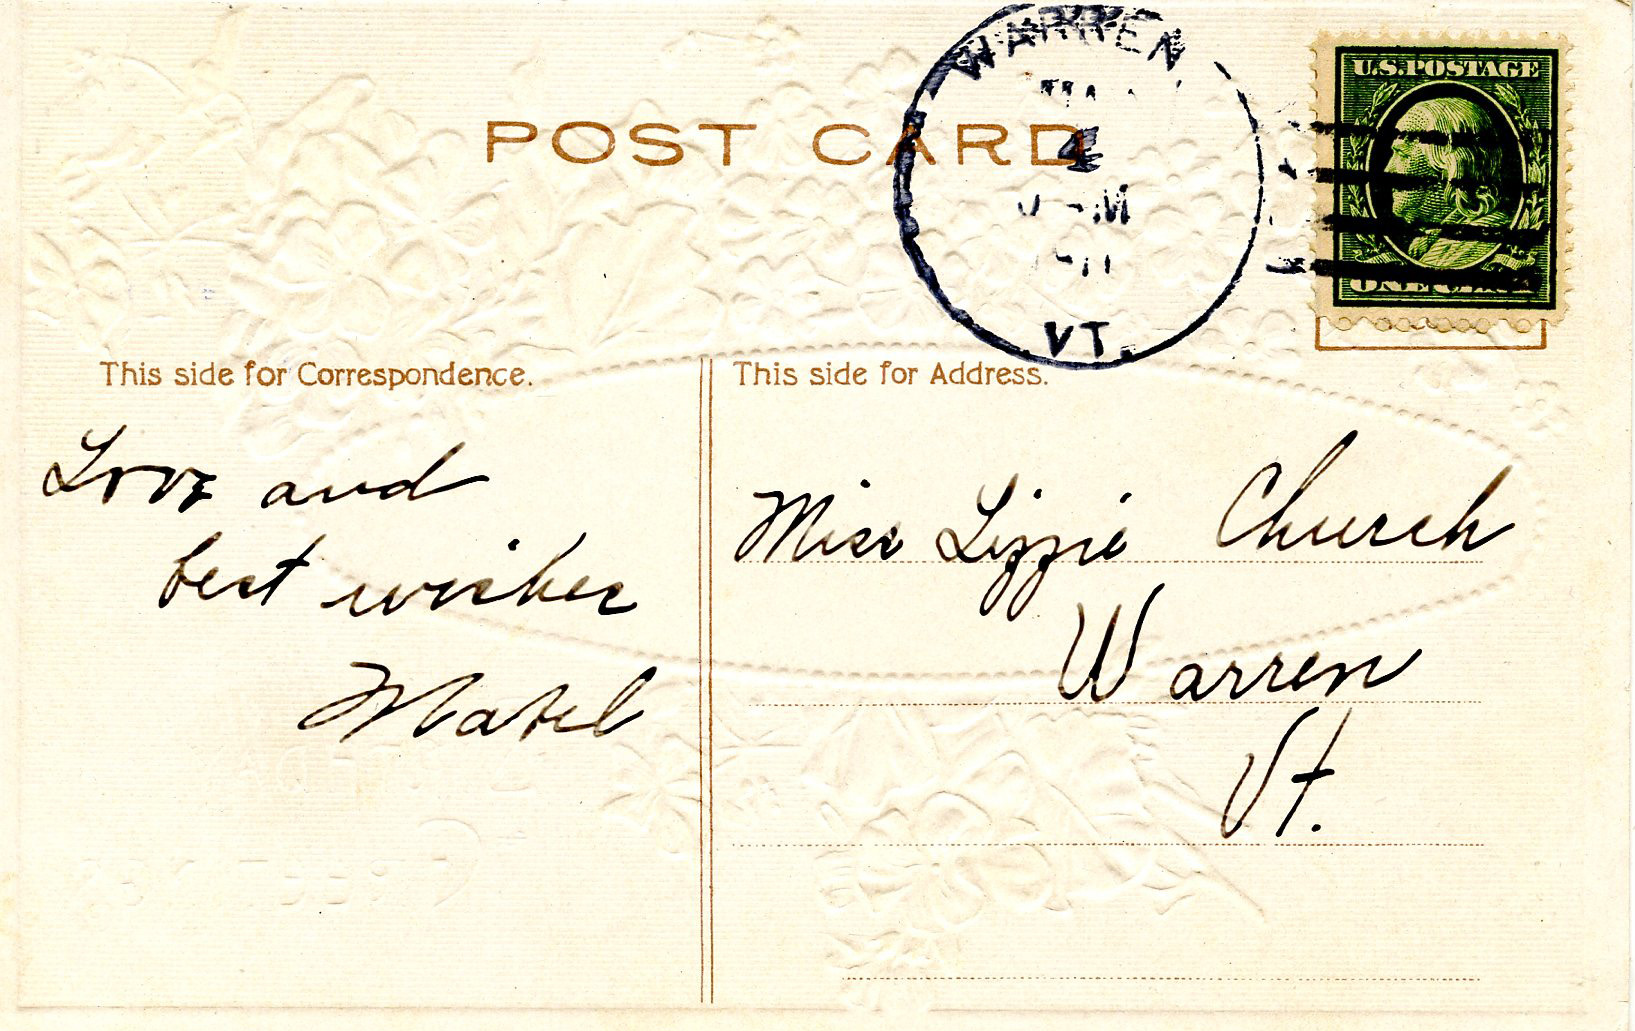 POST CARD
WARREN,
4
M
VT.
U.S. POSTAGE
ONE CENT
This side for Correspondence.
This side for Address.
Love and
best wishes
Mabel
Miss Lizzie Church
Warren
Vt.